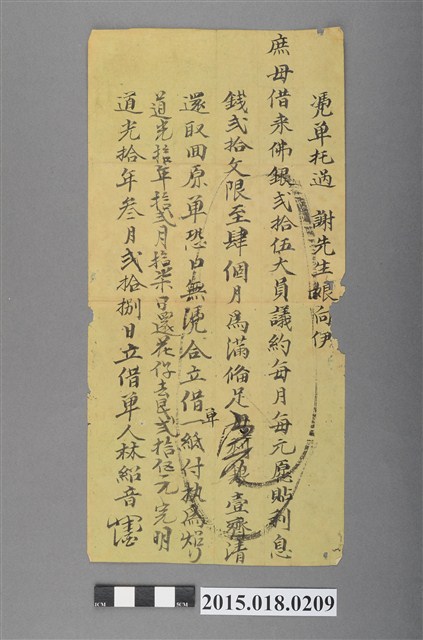 憑單托過　謝先生娘向伊
庶母借来佛銀弍拾伍大員議約每月每元愿貼利息
錢弍拾文限至肆個月為滿俻足母利銀壹齊清
還取回原单恐口無凴合立借单一紙付执為炤
道光拾年拾弍月拾柒日還花俻去艮弍拾伍元完明
道光拾年叁月弍拾捌日立借单人林紹音
1CM 0CM 5CM
2015.018.0209